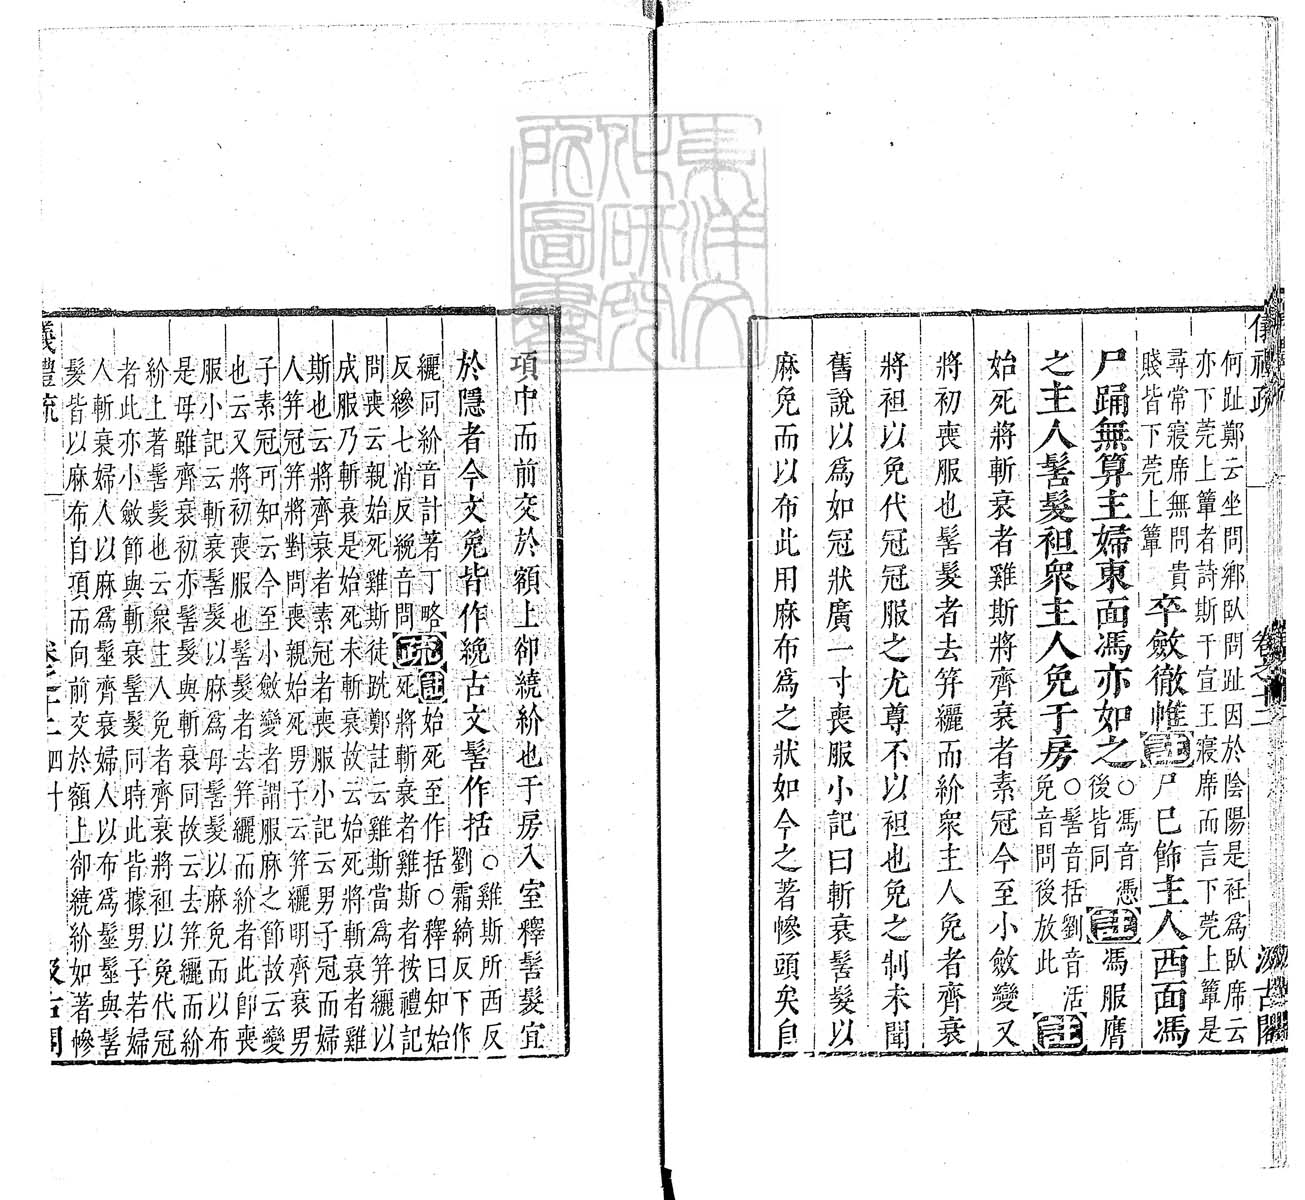 儀禮疏 卷之十二 汲古閣
何趾鄭云坐問鄉臥問趾因於陰陽是衽爲臥席云
亦下莞上簟者詩斯干宣王寢席而言下莞上簟是
尋常寢席無問貴
賤皆下莞上簟
卒斂徹帷
註
尸已飾
主人西面馮
尸踊無算主婦東面馮亦如之
○馮音憑
後皆同
註
馮服膺
之主人髺髮袒衆主人免于房
○髺音括劉音活
免音問後放此
註
始死將斬衰者雞斯將齊衰者素冠今至小斂變又
將初喪服也髺髮者去笄纚而紒衆主人免者齊衰
將袒以免代冠冠服之尤尊不以袒也免之制未聞
舊說以爲如冠狀廣一寸喪服小記曰斬衰髺髮以
麻免而以布此用麻布爲之狀如今之著幓頭矣自
項中而前交於額上卻繞紒也于房入室釋髺髮宜
於隱者今文免皆作絻古文髺作括
○雞斯所西反
劉霜綺反下作
纚同紒音計著丁略
反幓七消反絻音問
疏
註
始死至作括○釋曰知始
死將斬衰者雞斯者按禮記
問喪云親始死雞斯徒跣鄭註云雞斯當爲笄纚以
成服乃斬衰是始死未斬衰故云始死將斬衰者雞
斯也云將齊衰者素冠者喪服小記云男子冠而婦
人笄冠笄將對問喪親始死男子云笄纚明齊衰男
子素冠可知云今至小斂變者謂服麻之節故云變
也云又將初喪服也髺髮者去笄纚而紒者此卽喪
服小記云斬衰髺髮以麻爲母髺髮以麻免而以布
是母雖齊衰初亦髺髮與斬衰同故云去笄纚而紒
紒上著髺髮也云衆主人免者齊衰將袒以免代冠
者此亦小斂節與斬衰髺髮同時此皆據男子若婦
人斬衰婦人以麻爲髽齊衰婦人以布爲髽髽與髺
髮皆以麻布自項而向前交於額上卻繞紒如著幓
儀禮疏 卷之十二 四十 汲古閣
東洋文化研究所圖書